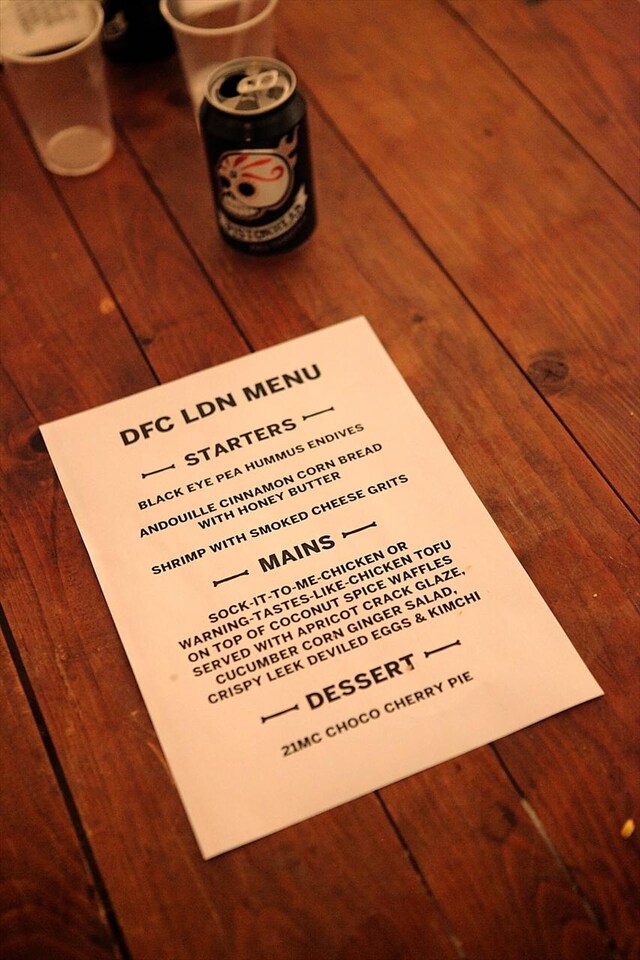 PISTONHEAD
DFC LDN MENU
STARTERS
BLACK EYE PEA HUMMUS ENDIVES
ANDOUILLE CINNAMON CORN BREAD
WITH HONEY BUTTER
SHRIMP WITH SMOKED CHEESE GRITS
MAINS
SOCK-IT-TO-ME-CHICKEN OR
WARNING-TASTES-LIKE-CHICKEN TOFU
ON TOP OF COCONUT SPICE WAFFLES
SERVED WITH APRICOT CRACK GLAZE,
CUCUMBER CORN GINGER SALAD,
CRISPY LEEK DEVILED EGGS & KIMCHI
DESSERT
21MC CHOCO CHERRY PIE